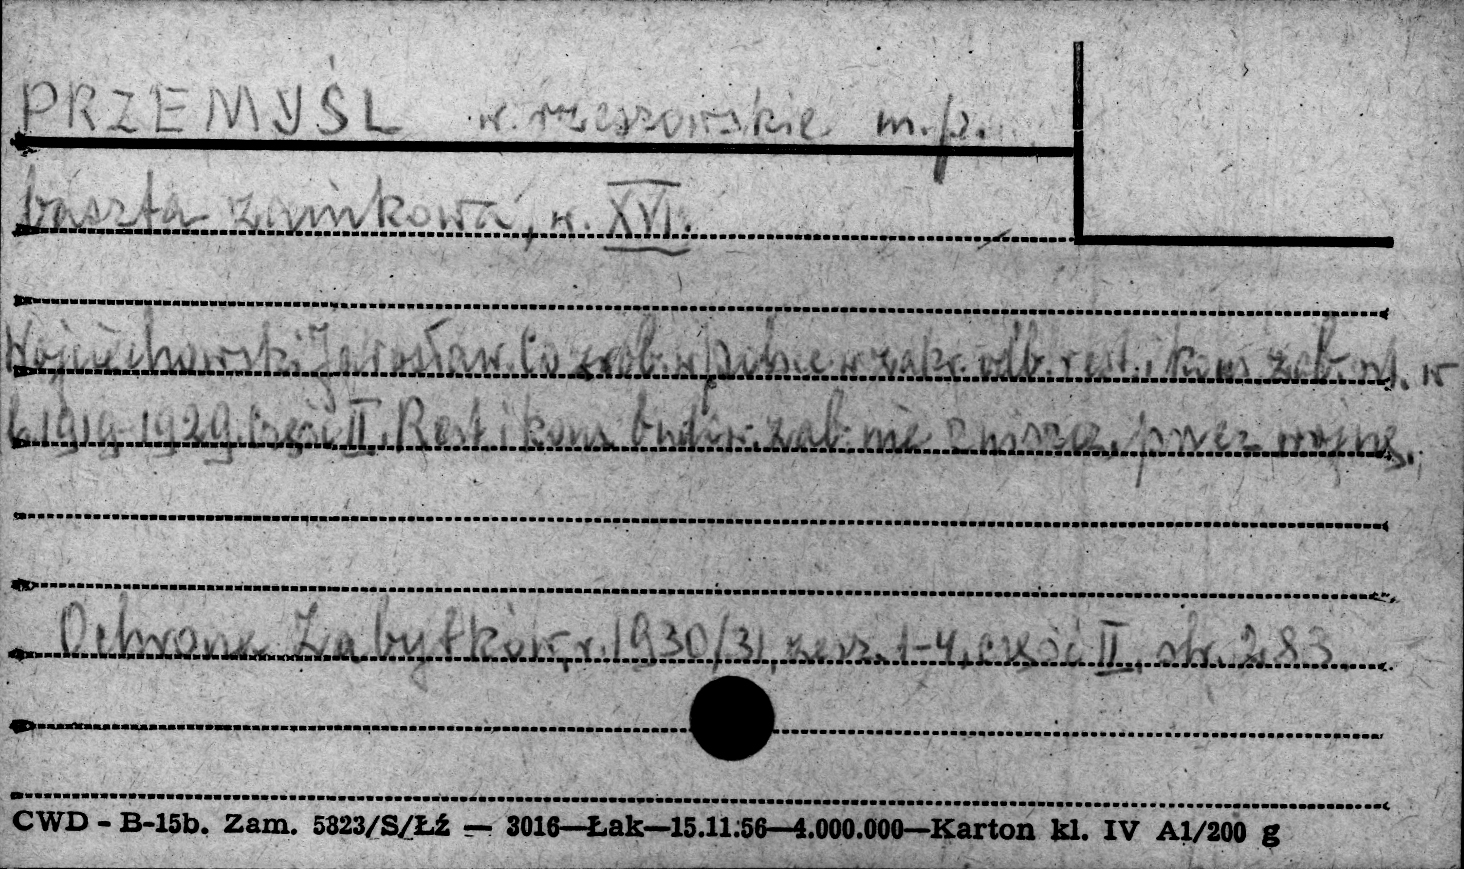 PRZEMYŚL w. rzeszowskie m.p.
baszta zamkowa, w. XVI.
Wojciechowski Jarosław. Co zrob. w Polsce w zakr. odb. rest. i kons. zab. szt. w
l. 1919-1929 Część II. Rest. i kons. budow. zab. nie zniszcz. przez wojnę.
Ochrona Zabytków, r. 1930/31, zesz. 1-4, część II, str. 283.
CWD - B-15b. Zam. 5823/S/Łź — 3016—Łak—15.11.56—4.000.000—Karton kl. IV A1/200 g